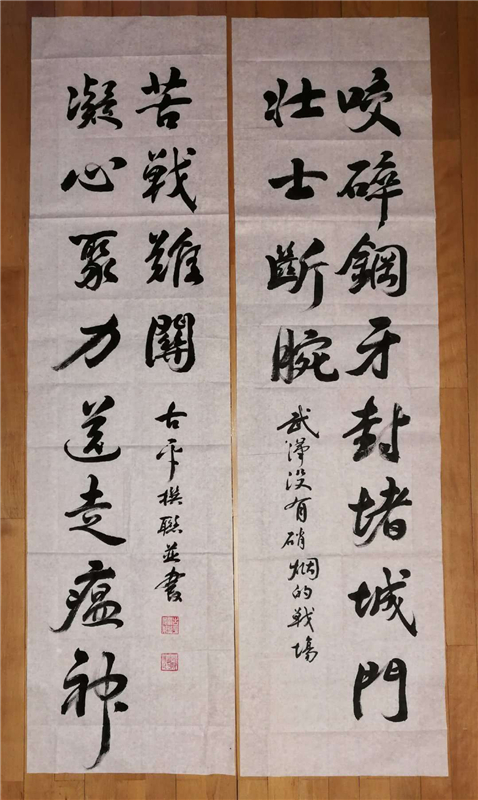 咬碎鋼牙封堵城門
壮士斷腕
武漢没有硝烟的戦場
凝心聚力送走瘟神
苦戦難關
古平撰聯並書